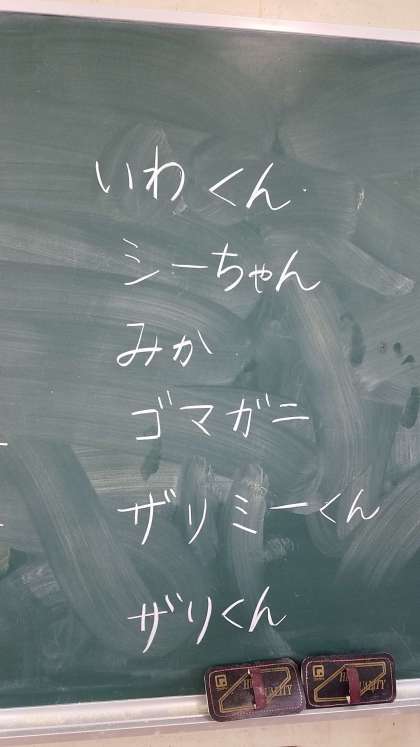 いわくん
シーちゃん
みか
ゴマガニ
ザリミーくん
ザリくん
HIGH QUALITY